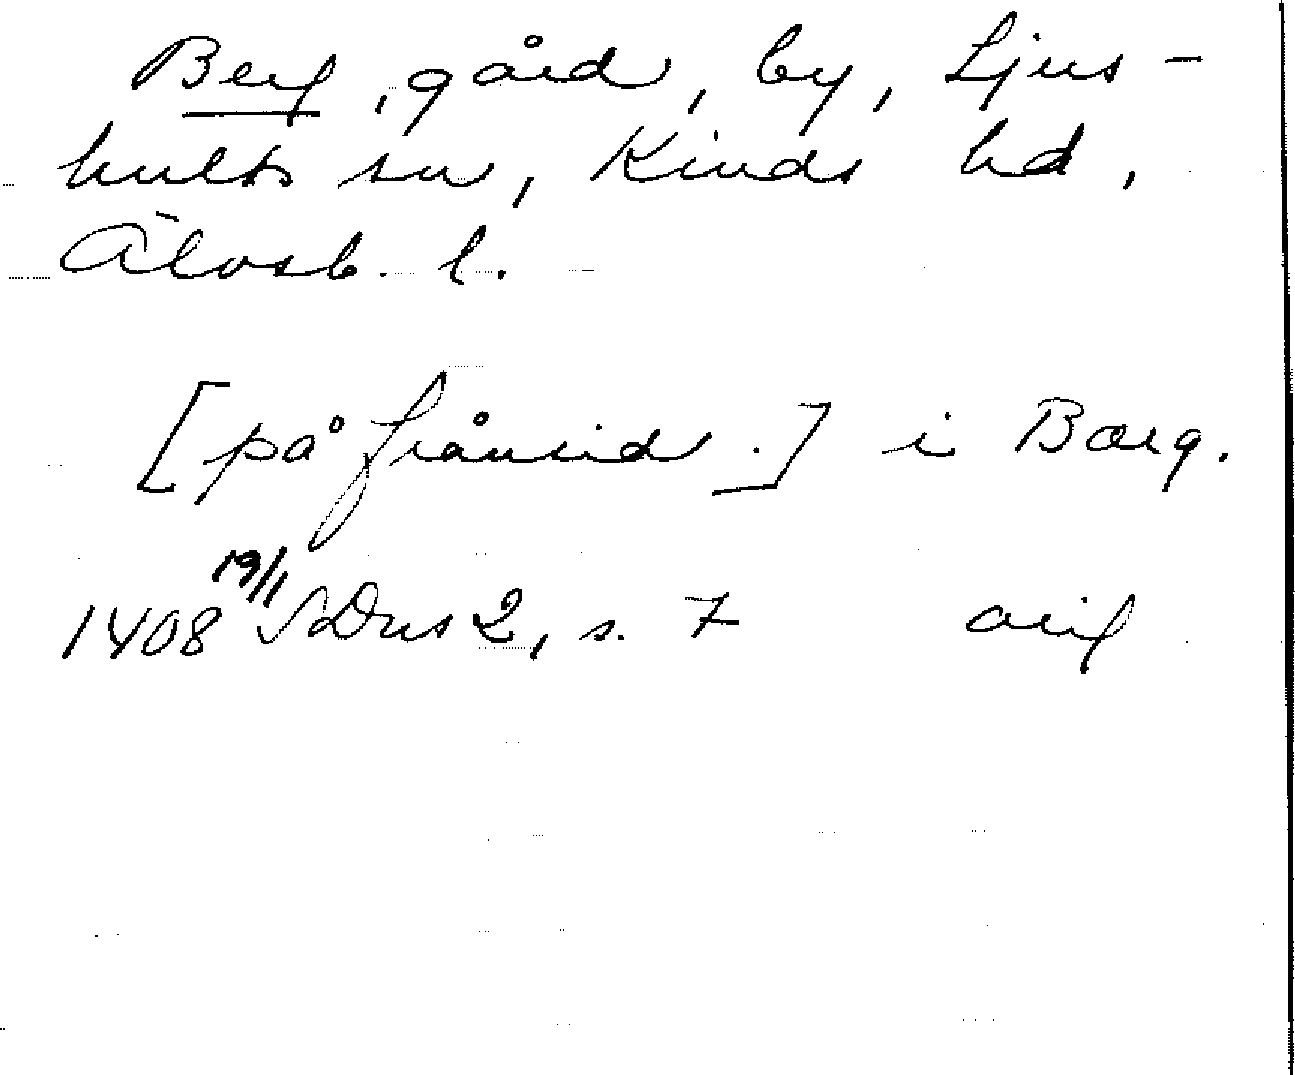 Berg, gård, by, Ljus-
hults sn, Kinds hd,
Älvsb. l.
[på frånsid.] i Bærg.
1408 19/1 SDns 2, s. 7 orig